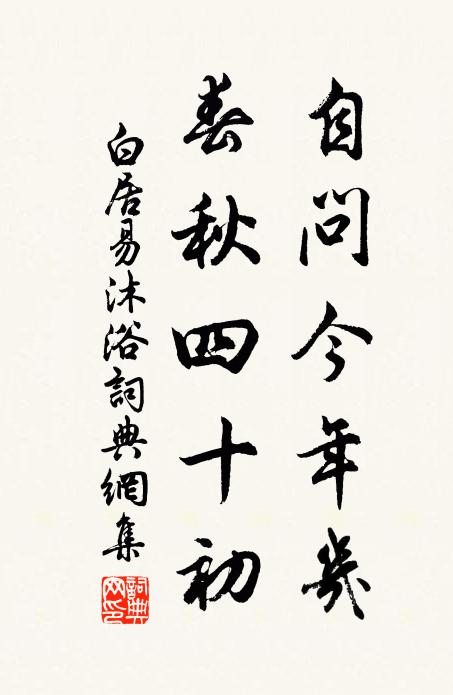 自問今年幾
春秋四十初
白居易沐浴詞典網集
詞典網印